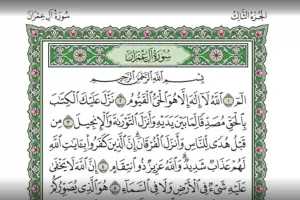 الجزء الثالث
سورة آل عمران
سورة آل عمران
بسم الله الرحمن الرحيم
الم ١ الله لا إله إلا هو الحي القيوم ٢ نزل عليك الكتب
بالحق مصدقا لما بين يديه وأنزل التورىة والإنجيل ٣ من
قبل هدى للناس وأنزل الفرقان إن الذين كفروا بءايت الله
لهم عذاب شديد والله عزيز ذو انتقام ٤ إن الله لا يخفى
عليه شىء في الأرض ولا في السماء ٥ هو الذي يصوركم